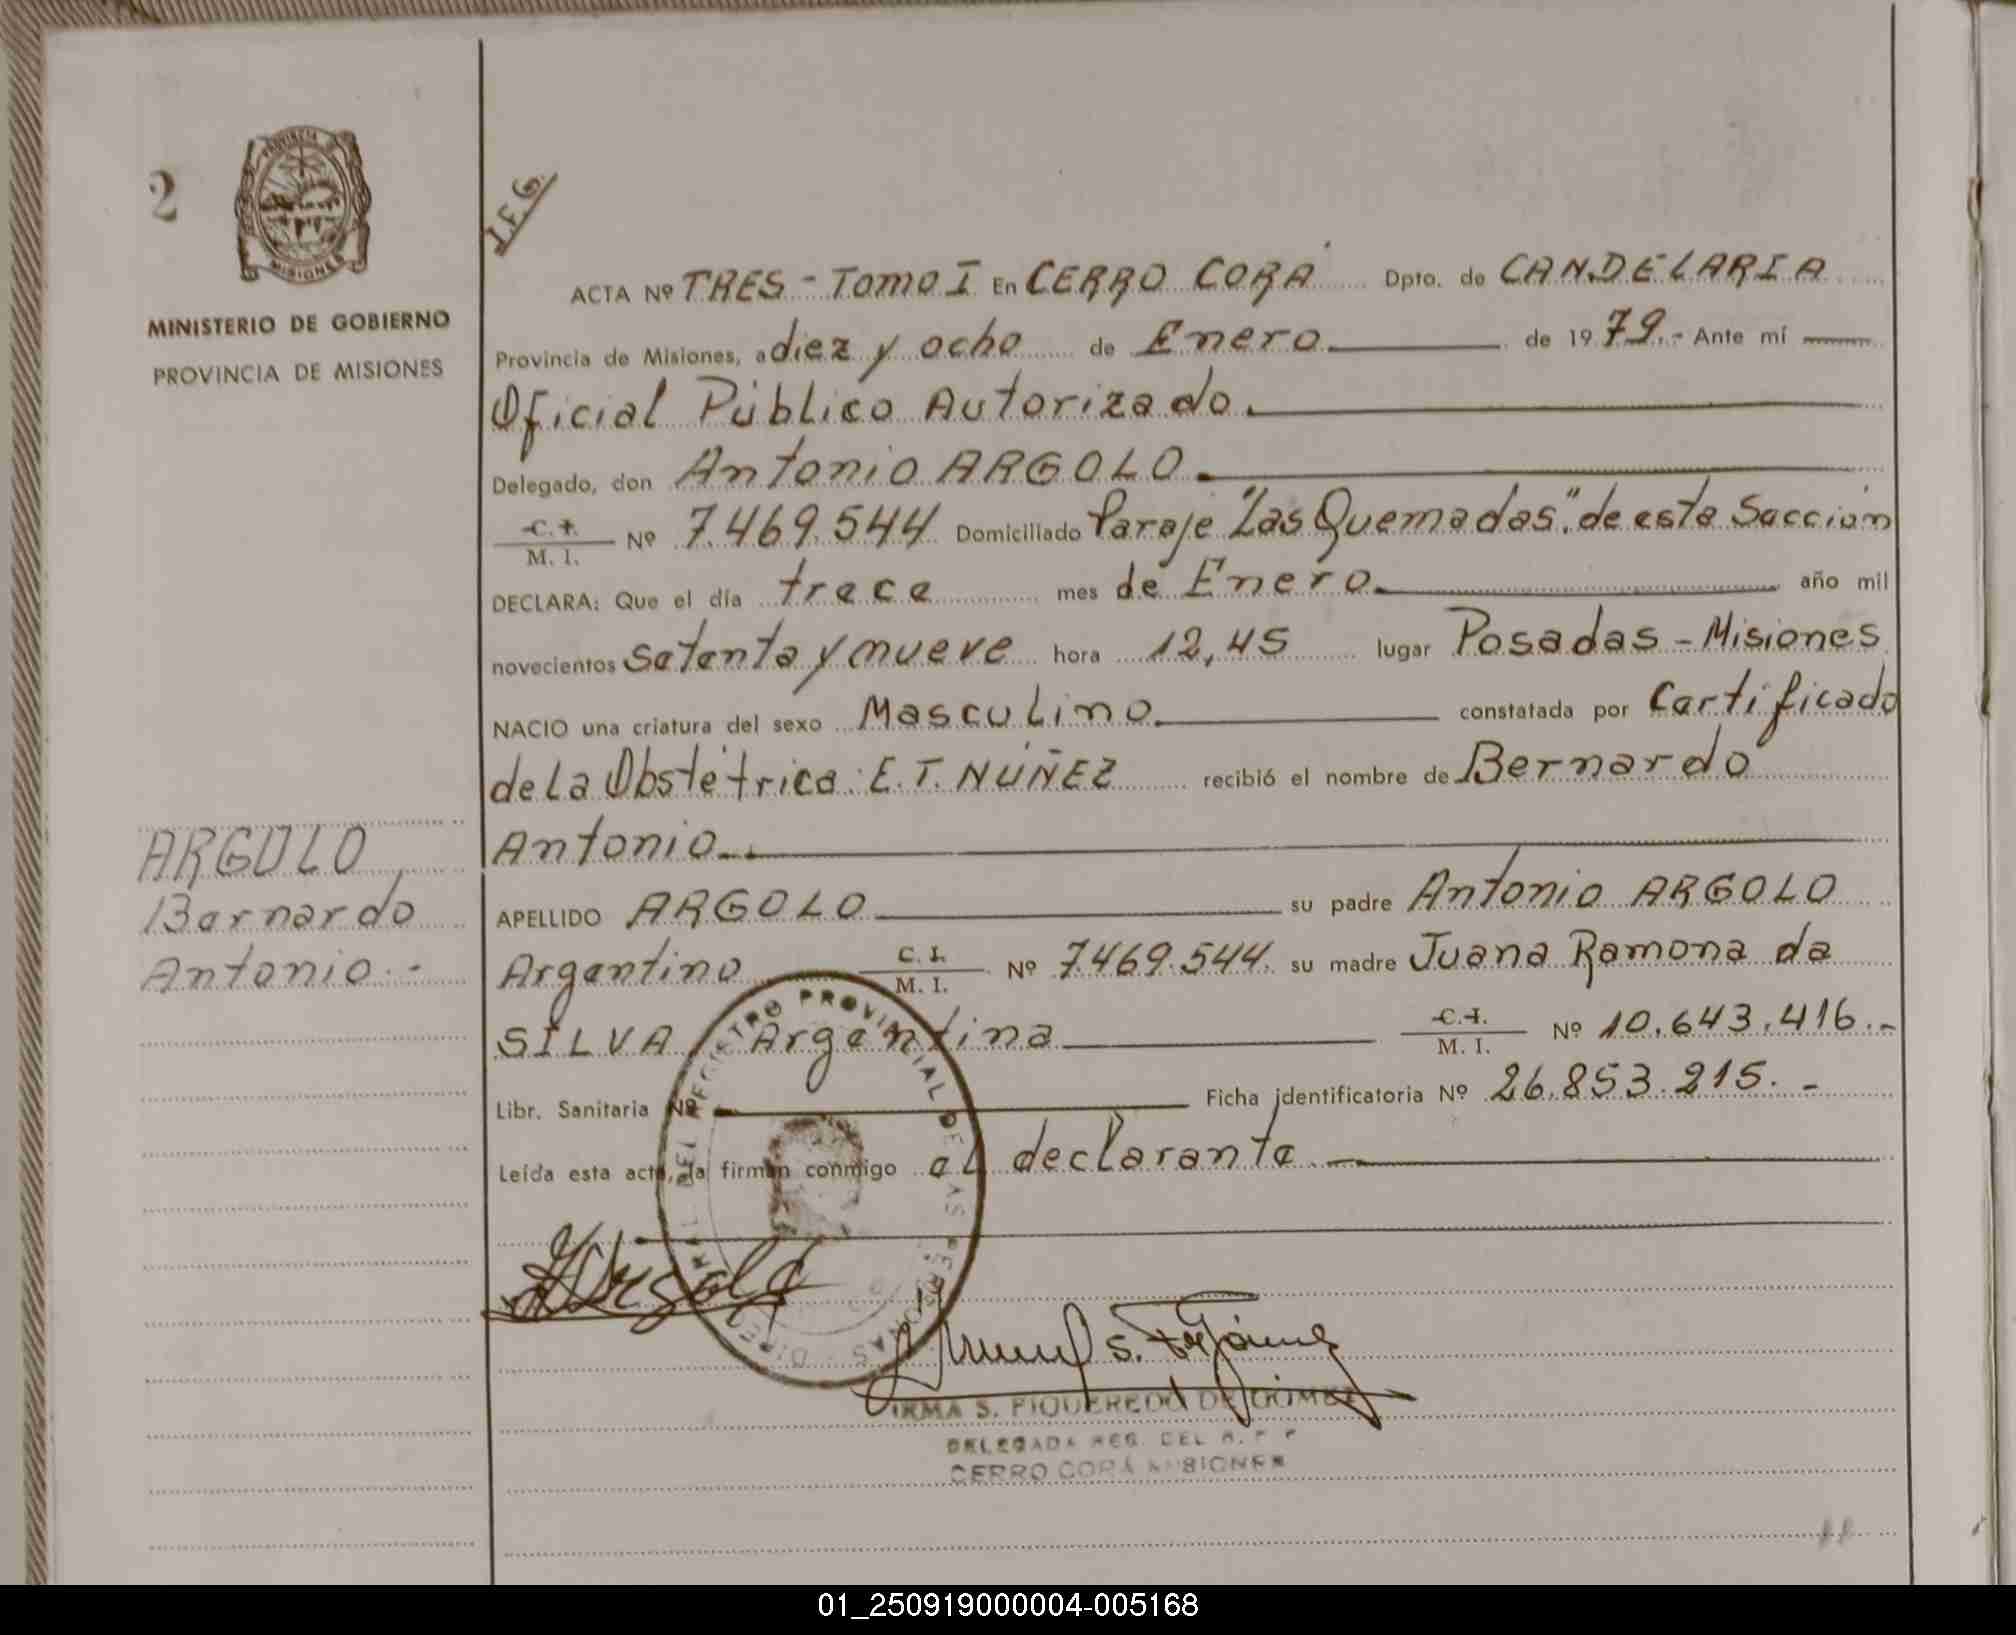 2
PROVINCIA DE
MISIONES
MINISTERIO DE GOBIERNO
PROVINCIA DE MISIONES
ARGOLO
Bernardo
Antonio.-
I.F.G.
ACTA Nº TRES - Tomo I En CERRO CORÁ Dpto. de CANDELARIA
Provincia de Misiones, a diez y ocho de Enero de 1979.- Ante mí
Oficial Público Autorizado.
Delegado, don Antonio ARGOLO
C.I. / M. I. Nº 7.469.544 Domiciliado Paraje "Las Quemadas" de esta Sección
DECLARA: Que el día trece mes de Enero. año mil
novecientos setenta y nueve hora 12,45 lugar Posadas - Misiones
NACIO una criatura del sexo Masculino. constatada por Certificado
de La Obstétrica: E.T. NÚÑEZ recibió el nombre de Bernardo
Antonio..
APELLIDO ARGOLO su padre Antonio ARGOLO
Argentino C. I. / M. I. Nº 7.469.544. su madre Juana Ramona da
SILVA Argentina C.I. / M. I. Nº 10.643.416.-
Libr. Sanitaria Nº Ficha identificatoria Nº 26.853.215.-
Leída esta acta, la firman conmigo el declarante
DIREC GRAL DEL REGISTRO PROVINCIAL DE LAS PERSONAS
Argolo
Irma S. F. de Gómez
IRMA S. FIQUEREDO DE GÓMEZ
DELEGADA REG. DEL R. P. P.
CERRO CORÁ MISIONES
01_250919000004-005168